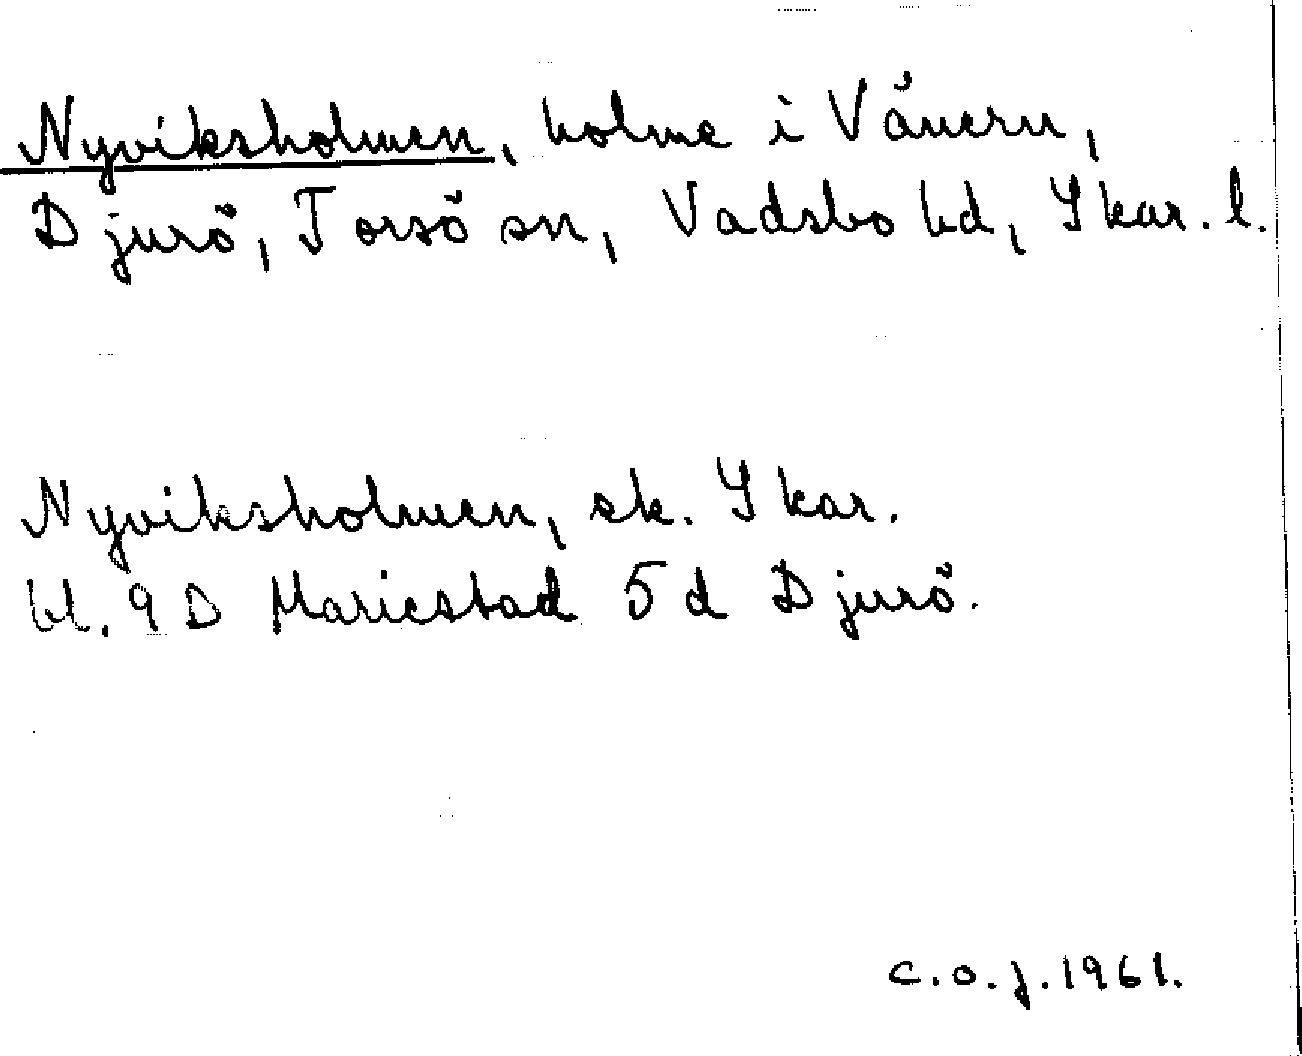 Nyviksholmen, holme i Vänern,
Djurö, Torsö sn, Vadsbo hd, Skar. l.
Nyviksholmen, ek. Skar.
bl. 9 D Mariestad 5 d Djurö.
C.O.J. 1961.